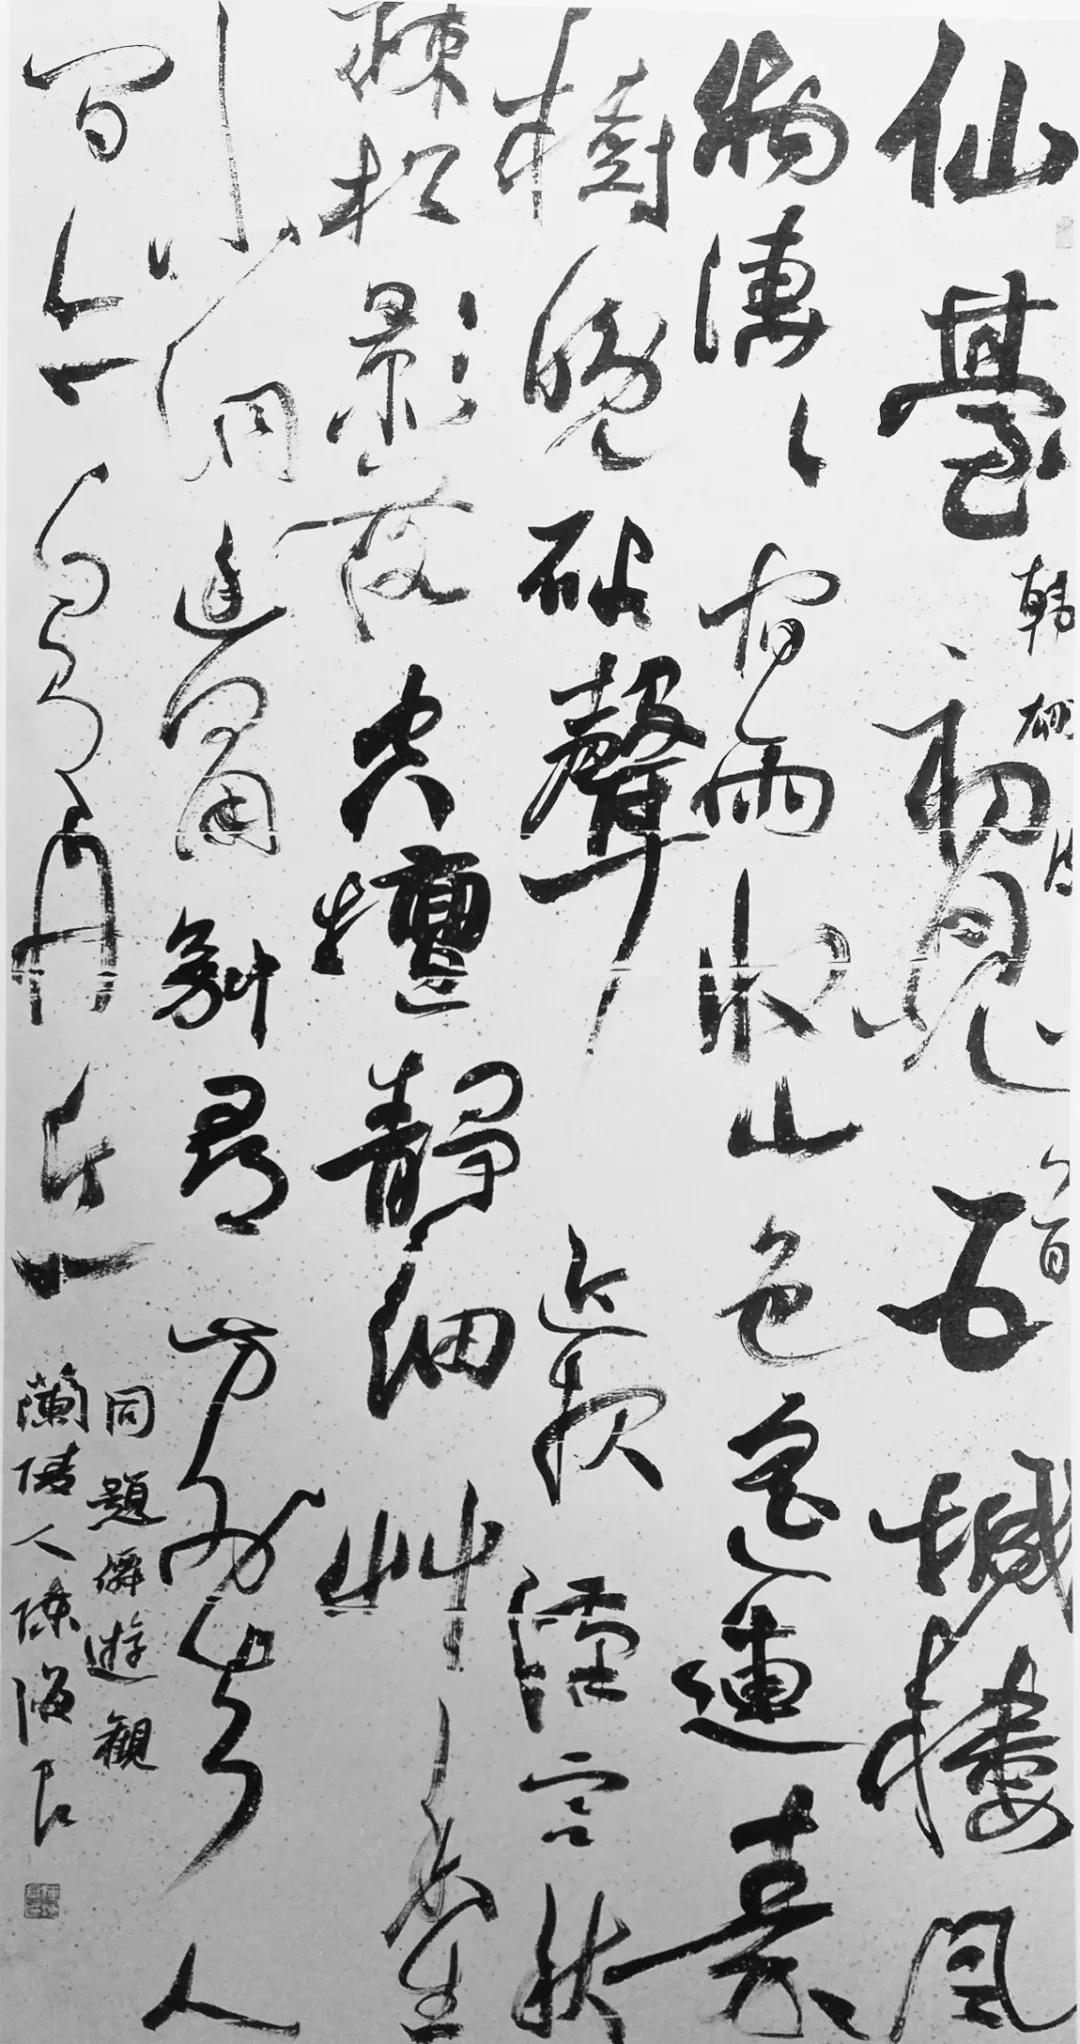 仙臺初見五城樓風
韓翃詩
首
物淒〻宿雨收山色遙連秦
樹晚砧聲近報漢宮秋
疎松影落空壇靜細艸香生
小洞尋方外去人
間亦自有丹丘
同題僊遊觀
蘭陵人陳海良